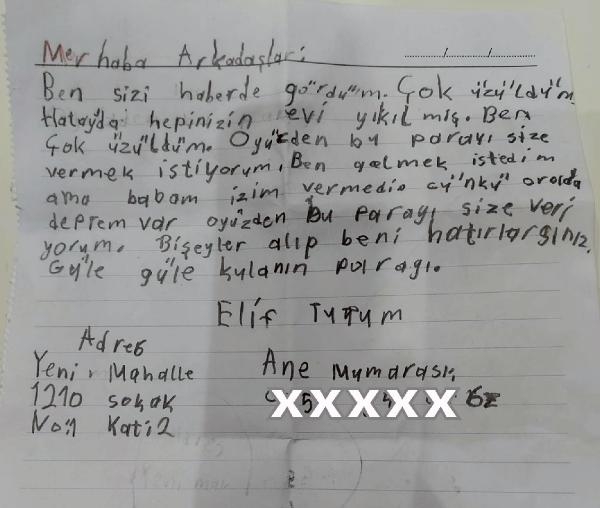 Merhaba Arkadaşlar:
Ben sizi haberde gördüm. Çok üzüldüm.
Hatayda hepinizin evi yıkılmış. Ben
Çok üzüldüm. Oyüzden bu parayı size
vermek istiyorum. Ben gelmek istedim
ama babam izim vermedi. cünkü orolda
deprem var oyüzden bu parayı size veri
yorum. Bişeyler alıp beni hatırlarsınız.
Güle güle kulanın parayı.
Elif
Adres
Yeni Mahalle Ane Mumarası
1210 sokak XXXXX
No:1 Kati2